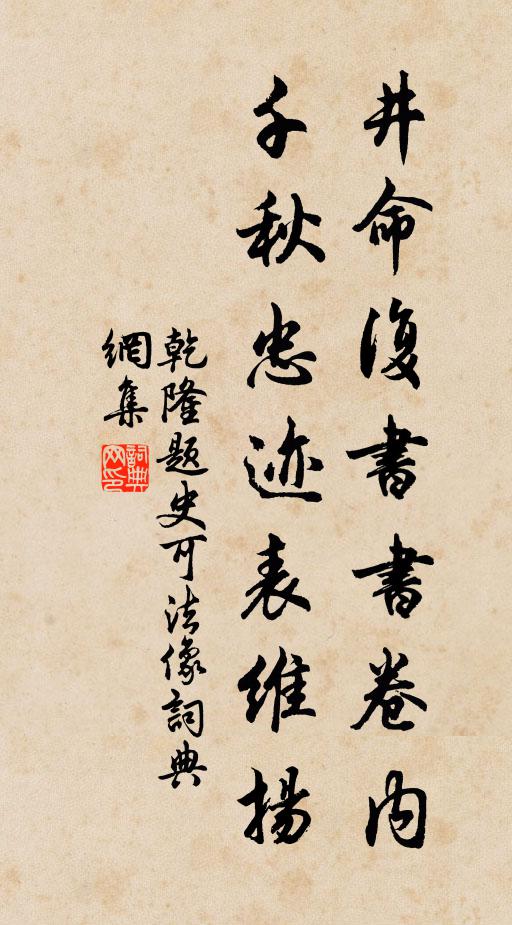 井命復書書卷內
千秋忠迹表維揚
乾隆題史可法像詞典
網集
詞典網印